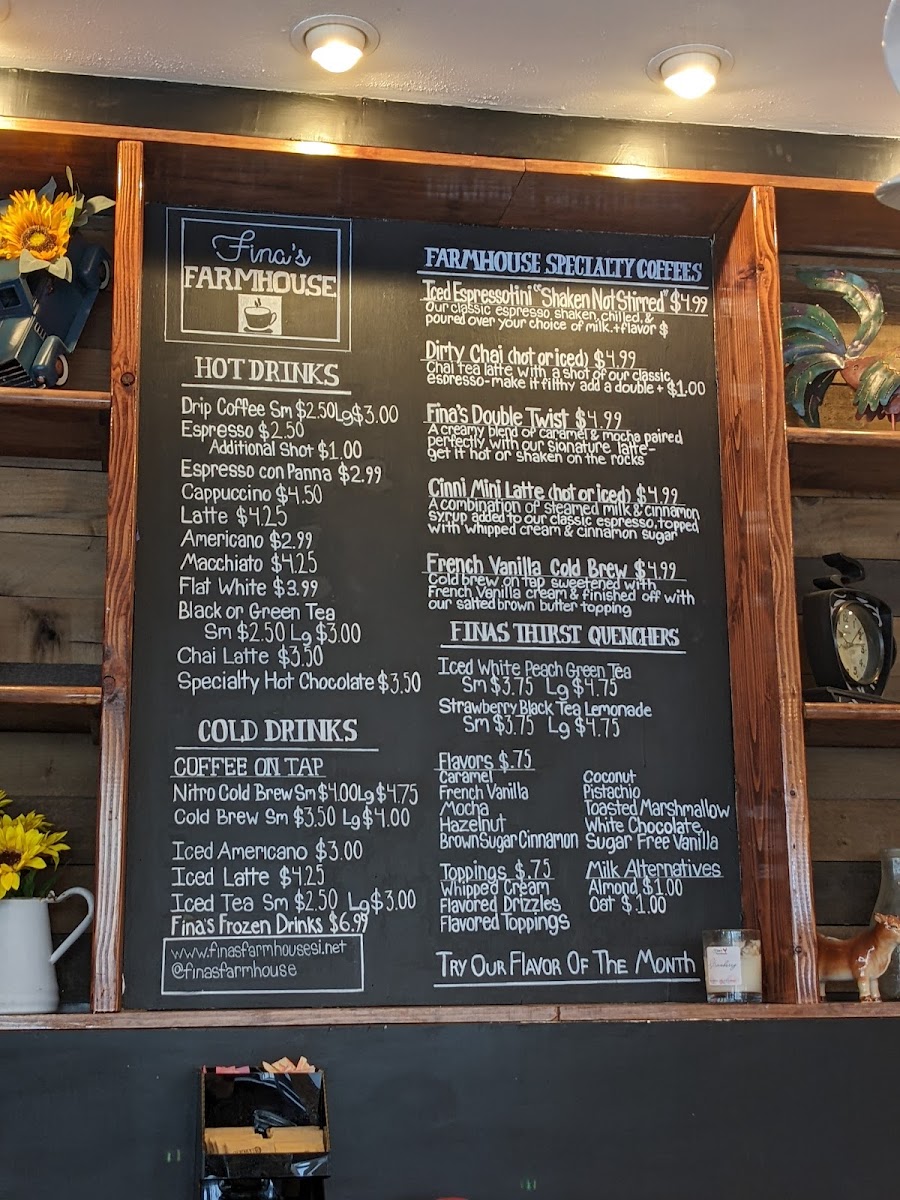 Fina's
FARMHOUSE
HOT DRINKS
Drip Coffee Sm $2.50 Lg $3.00
Espresso $2.50
Additional Shot $1.00
Espresso con Panna $2.99
Cappuccino $4.50
Latte $4.25
Americano $2.99
Macchiato $4.25
Flat White $3.99
Black or Green Tea
Sm $2.50 Lg $3.00
Chai Latte $3.50
Specialty Hot Chocolate $3.50
COLD DRINKS
COFFEE ON TAP
Nitro Cold Brew Sm $4.00 Lg $4.75
Cold Brew Sm $3.50 Lg $4.00
Iced Americano $3.00
Iced Latte $4.25
Iced Tea Sm $2.50 Lg $3.00
Fina's Frozen Drinks $6.99
www.finasfarmhousesi.net
@finasfarmhouse
FARMHOUSE SPECIALTY COFFEES
Iced Espressotini "Shaken Not Stirred" $4.99
Our classic espresso, shaken, chilled, &
poured over your choice of milk. + flavor $
Dirty Chai (hot or iced) $4.99
Chai tea latte with a shot of our classic
espresso - make it filthy add a double + $1.00
Fina's Double Twist $4.99
A creamy blend of caramel & mocha paired
perfectly with our signature latte -
get it hot or shaken on the rocks
Cinni Mini Latte (hot or iced) $4.99
A combination of steamed milk & cinnamon
syrup added to our classic espresso, topped
with whipped cream & cinnamon sugar
French Vanilla Cold Brew $4.99
Cold brew on tap sweetened with
French Vanilla cream & finished off with
our salted brown butter topping
FINAS THIRST QUENCHERS
Iced White Peach Green Tea
Sm $3.75 Lg $4.75
Strawberry Black Tea Lemonade
Sm $3.75 Lg $4.75
Flavors $.75
Caramel
French Vanilla
Mocha
Hazelnut
Brown Sugar Cinnamon
Coconut
Pistachio
Toasted Marshmallow
White Chocolate
Sugar Free Vanilla
Toppings $.75
Whipped Cream
Flavored Drizzles
Flavored Toppings
Milk Alternatives
Almond $1.00
Oat $1.00
TRY OUR FLAVOR OF THE MONTH